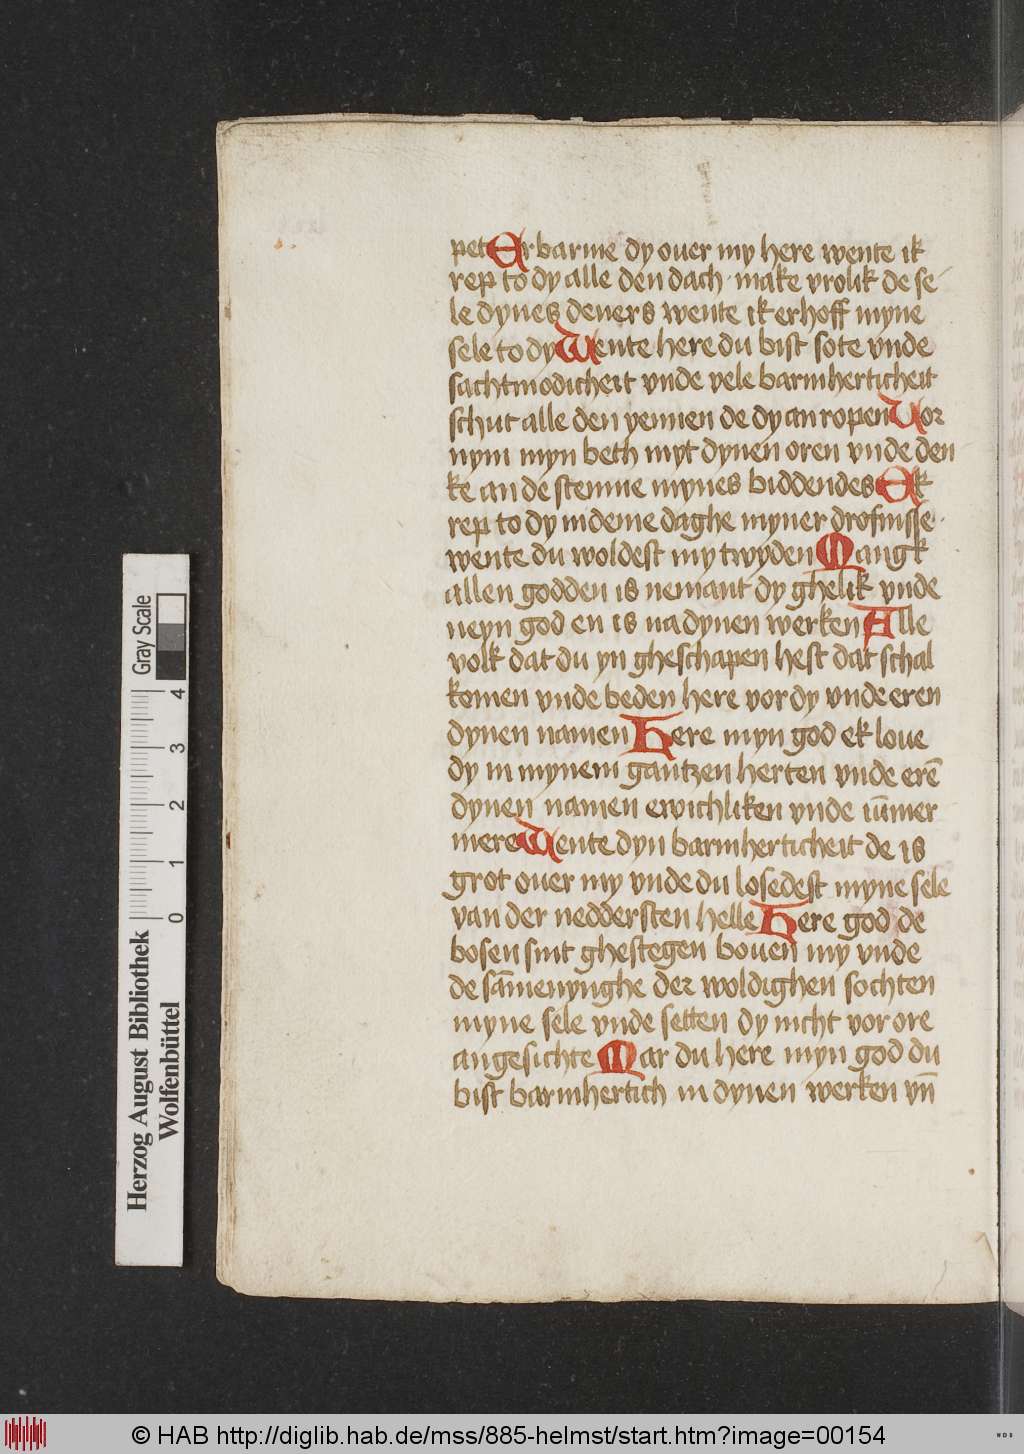 pet Erbarme dy ouer my here wente ik
rep to dy alle den dach · make vrolik de se
le dynes deners wente ik erhoff myne
sele to dy Wente here du bist sote vnde
sachtmodicheit vnde vele barmherticheit
schut alle den yennen de dy an ropen Vor
nym myn beth myt dynen oren vnde den
ke an de stemne mynes biddendes Ek
rep to dy in deme daghe myner drofnisse ·
wente du woldest my twyden Mangk
allen godden is nemant dy ghelik vnde
neyn god en is na dynen werken Alle
volk dat du yn gheschapen hest dat schal
komen vnde beden here vor dy vnde eren
dynen namen Here myn god ek loue
dy in mynem gantzen herten vnde erē
dynen namen ewichliken vnde iūmer
mere Wente dyn barmherticheit de is
grot ouer my vnde du losedest myne sele
van der neddersten helle Here god de
bosen sint ghestegen bouen my vnde
de sāmenynghe der woldighen sochten
myne sele vnde setten dy nicht vor ore
angesichte Mar du here myn god du
bist barmhertich in dynen werken vn̄
Gray Scale
4
3
2
1
0
Herzog August Bibliothek
Wolfenbüttel
© HAB http://diglib.hab.de/mss/885-helmst/start.htm?image=00154